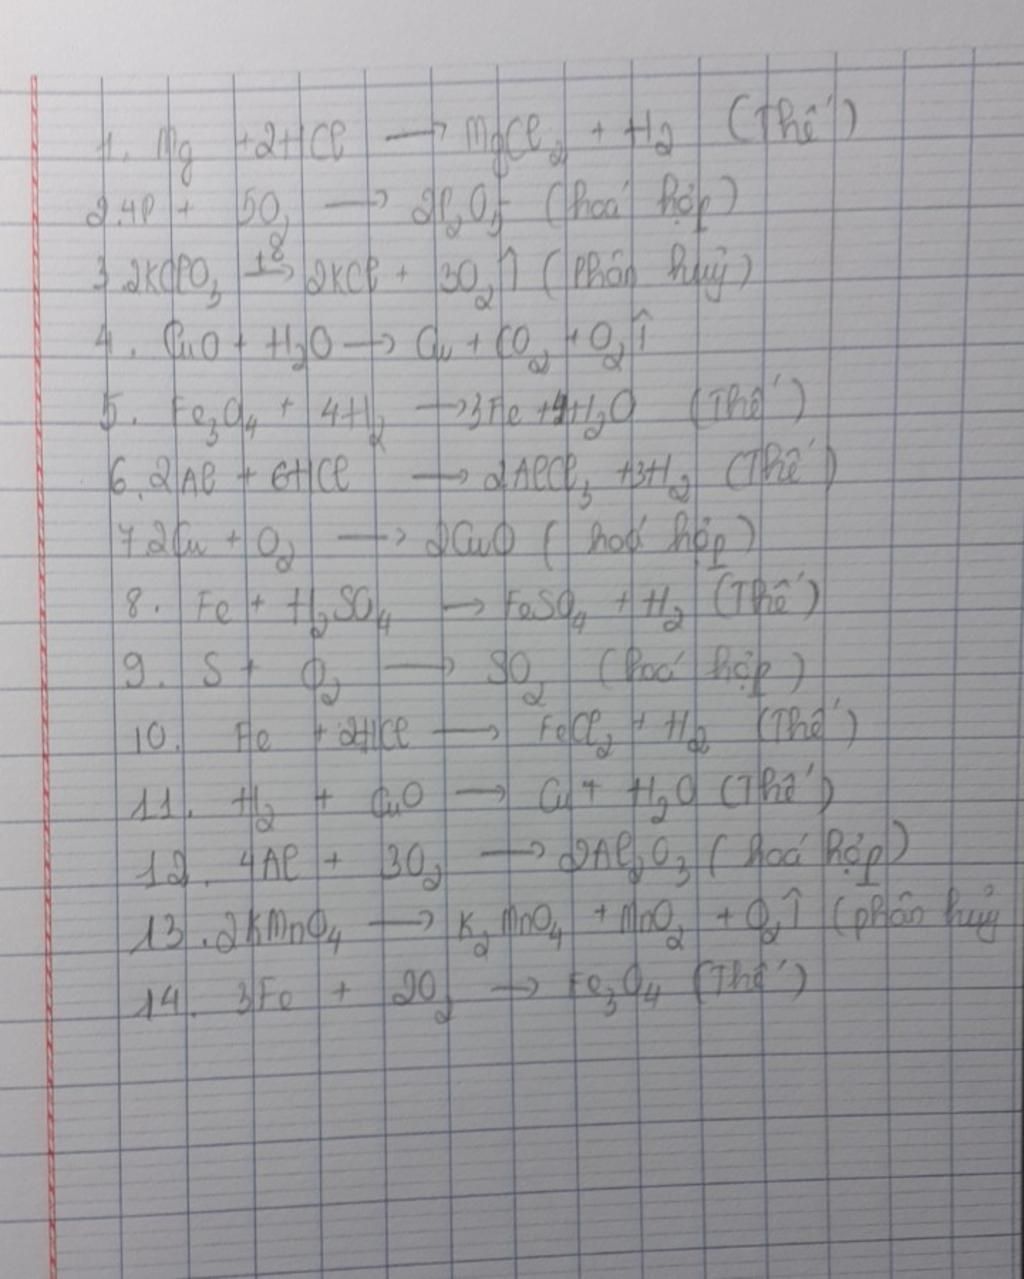 1. Mg + 2HCl → MgCl₂ + H₂ (Thế)
2. 4P + 5O₂ → 2P₂O₅ (hoá hợp)
3. 2KClO₃ → 2KCl + 3O₂↑ (phân huỷ)
4. CuO + H₂O → Cu + CO₂ + O₂↑
5. Fe₃O₄ + 4H₂ → 3Fe + 4H₂O (Thế)
6. 2Al + 6HCl → 2AlCl₃ + 3H₂ (Thế)
7. 2Cu + O₂ → 2CuO (hoá hợp)
8. Fe + H₂SO₄ → FeSO₄ + H₂ (Thế)
9. S + O₂ → SO₂ (hoá hợp)
10. Fe + 2HCl → FeCl₂ + H₂ (Thế)
11. H₂ + CuO → Cu + H₂O (Thế)
12. 4Al + 3O₂ → 2Al₂O₃ (hoá hợp)
13. 2KMnO₄ → K₂MnO₄ + MnO₂ + O₂↑ (phân huỷ
14. 3Fe + 2O₂ → Fe₃O₄ (Thế)